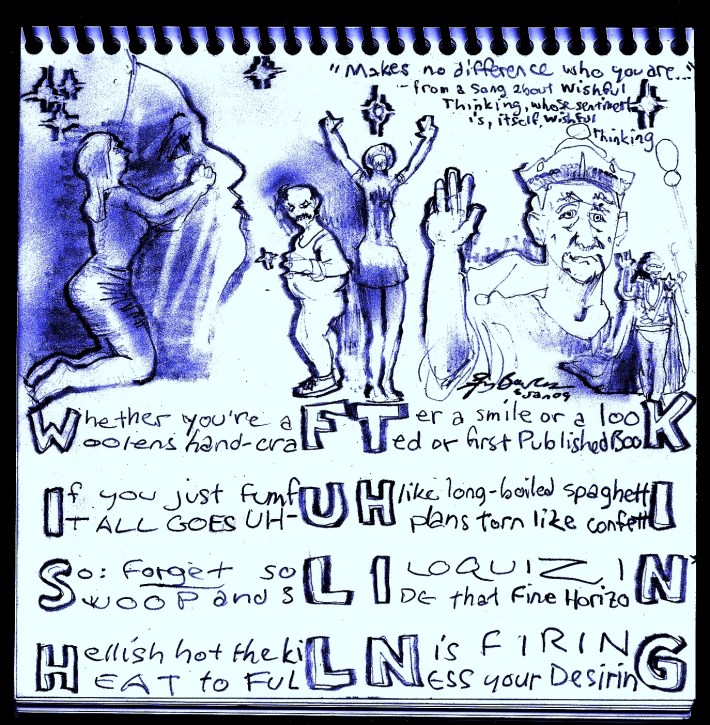 "Makes no difference who you are..."
- from a Song about Wishful
Thinking, whose sentiment
is, itself, wishful
Thinking
6 Jan 09
Whether you're aFTer a smile or a looK
Woolens hand-craFTed or first Published BooK
If you just fumfUH like long-boiled spaghettI
IT ALL GOES UH-UH plans torn like confettI
So: forget soLILOQUIZIN'
SWOOP and SLIDE that Fine HorizoN
Hellish hot the kiLN is FIRING
HEAT to FULLNESS your DesirinG